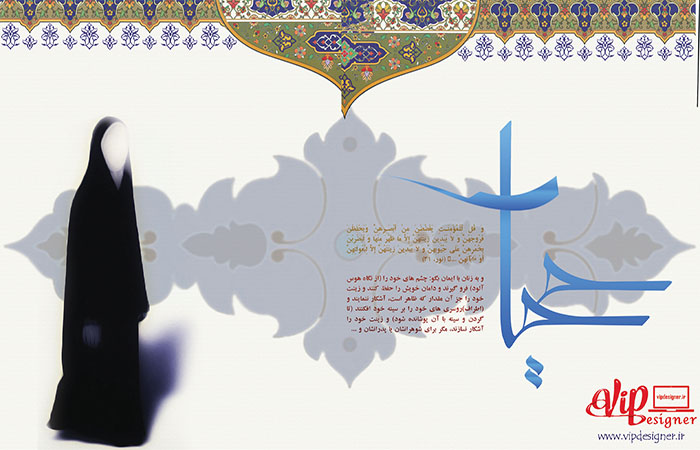 و قل للمؤمنت یغضضن من أبصرهنّ ویحفظن
فروجهن و لا یبدین زینتهن إلّا ما ظهر منها و لیضربن
بخمرهن علی جیوبهن و لا یبدین زینتهن إلّا لبعولتهنّ
أو ءابائهنّ ... (نور، ۳۱)
و به زنان با ایمان بگو: چشم های خود را (از نگاه هوس
آلود) فرو گیرند و دامان خویش را حفظ کنند و زینت
خود را جز آن مقدار که ظاهر است، آشکار ننمایند و
(اطراف)روسری های خود را بر سینه خود افکنند (تا
گردن و سینه با آن پوشانده شود) و زینت خود را
آشکار نسازند، مگر برای شوهرانشان یا پدرانشان و ...
Vip Designer
vipdesigner.ir
www.vipdesigner.ir